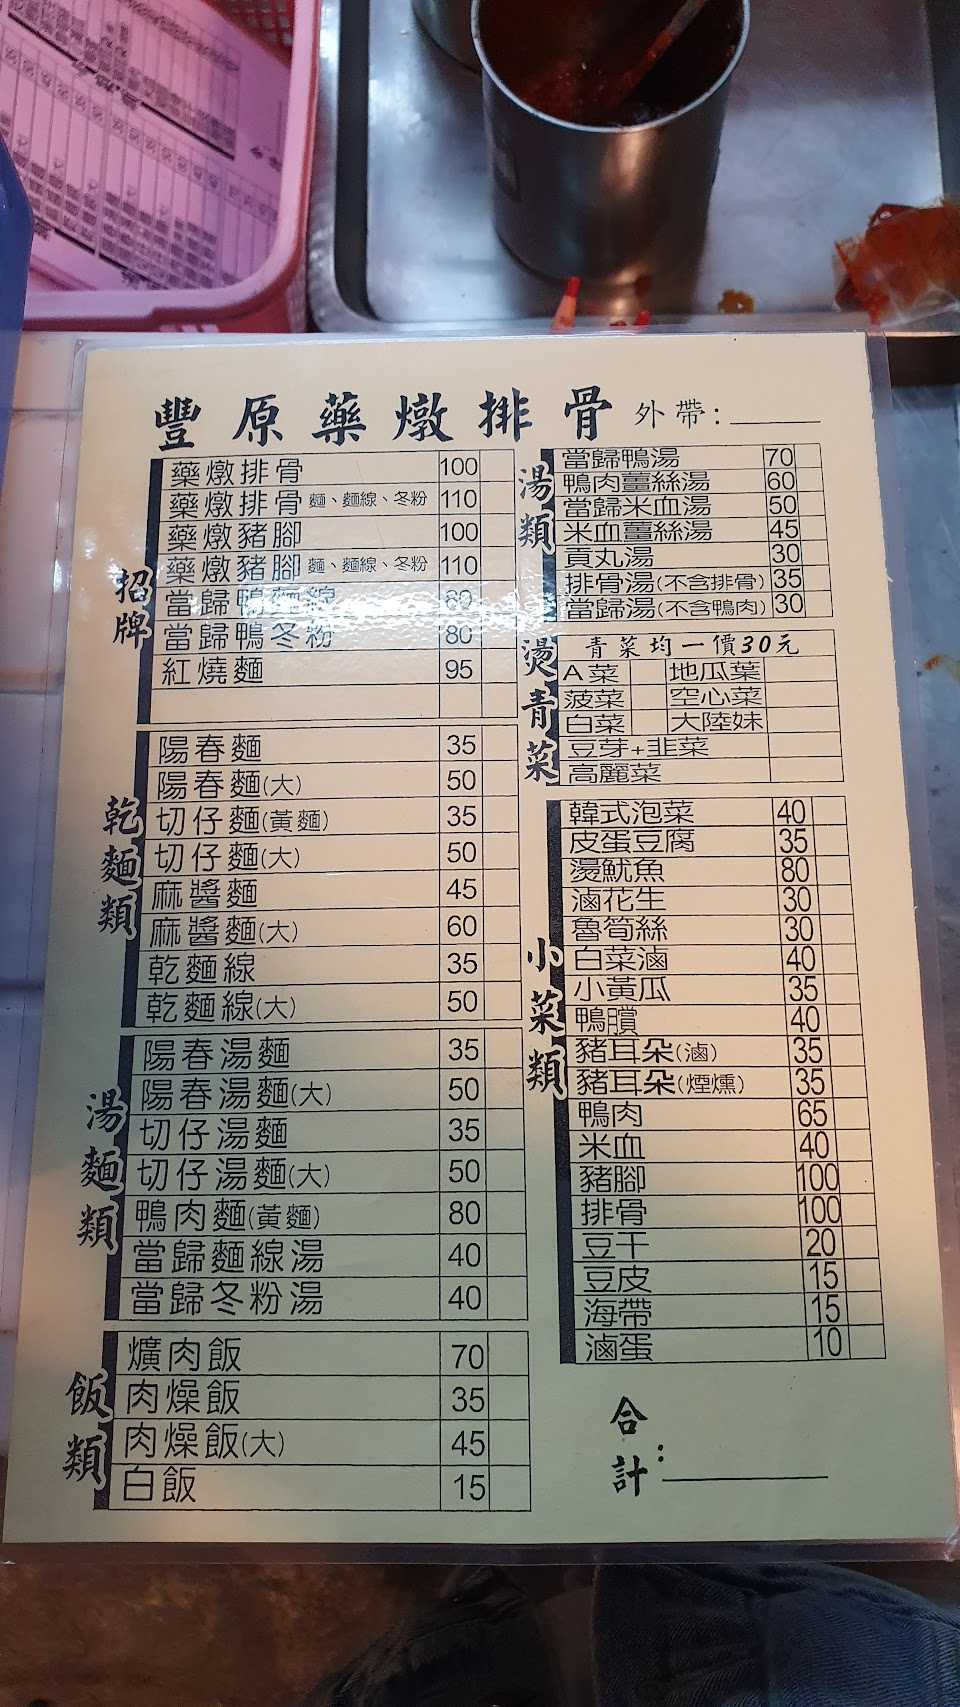 豐原藥燉排骨 外帶:
招牌
藥燉排骨 100
藥燉排骨 麵、麵線、冬粉 110
藥燉豬腳 100
藥燉豬腳 麵、麵線、冬粉 110
當歸鴨麵線 80
當歸鴨冬粉 80
紅燒麵 95
乾麵類
陽春麵 35
陽春麵(大) 50
切仔麵(黃麵) 35
切仔麵(大) 50
麻醬麵 45
麻醬麵(大) 60
乾麵線 35
乾麵線(大) 50
湯麵類
陽春湯麵 35
陽春湯麵(大) 50
切仔湯麵 35
切仔湯麵(大) 50
鴨肉麵(黃麵) 80
當歸麵線湯 40
當歸冬粉湯 40
飯類
爌肉飯 70
肉燥飯 35
肉燥飯(大) 45
白飯 15
湯類
當歸鴨湯 70
鴨肉薑絲湯 60
當歸米血湯 50
米血薑絲湯 45
貢丸湯 30
排骨湯(不含排骨) 35
當歸湯(不含鴨肉) 30
燙青菜
青菜均一價30元
A菜 地瓜葉
菠菜 空心菜
白菜 大陸妹
豆芽+韭菜
高麗菜
小菜類
韓式泡菜 40
皮蛋豆腐 35
燙魷魚 80
滷花生 30
魯筍絲 30
白菜滷 40
小黃瓜 35
鴨賞 40
豬耳朵(滷) 35
豬耳朵(煙燻) 35
鴨肉 65
米血 40
豬腳 100
排骨 100
豆干 20
豆皮 15
海帶 15
滷蛋 10
合計: